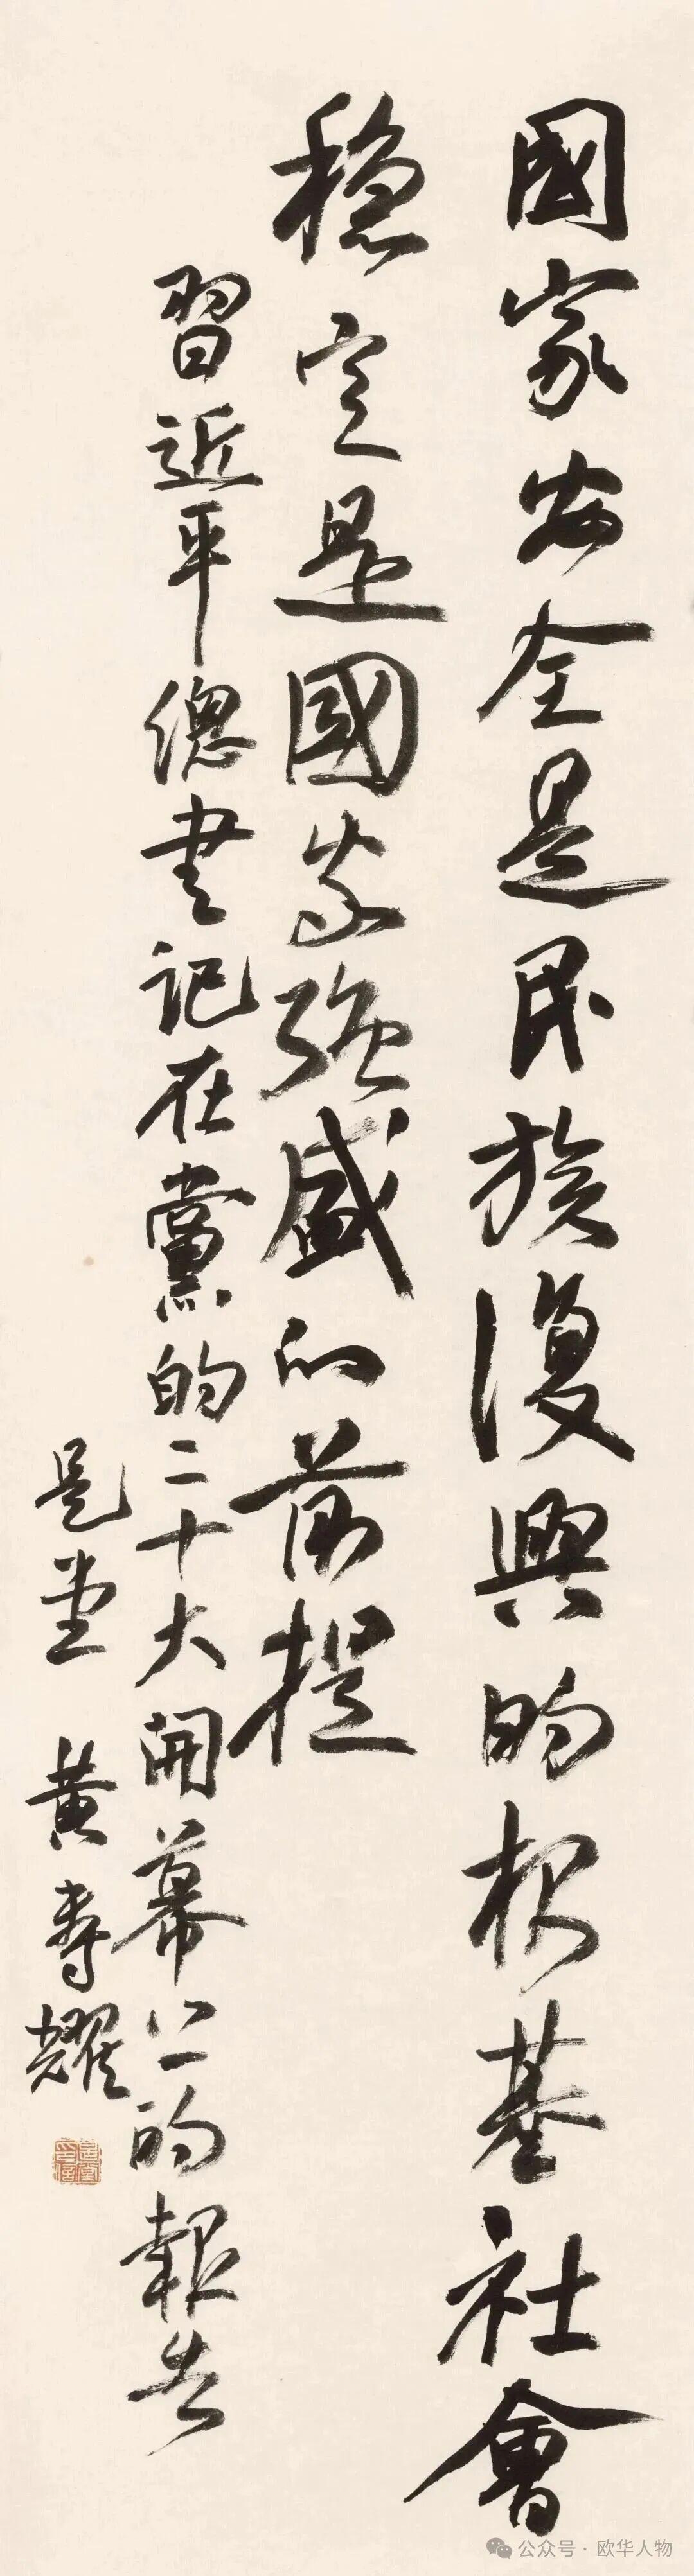 國家安全是民族復興的根基社會
穩定是國家強盛的前提
習近平總書記在黨的二十大開幕上的報告
是堂 黃壽耀
公众号·欧华人物